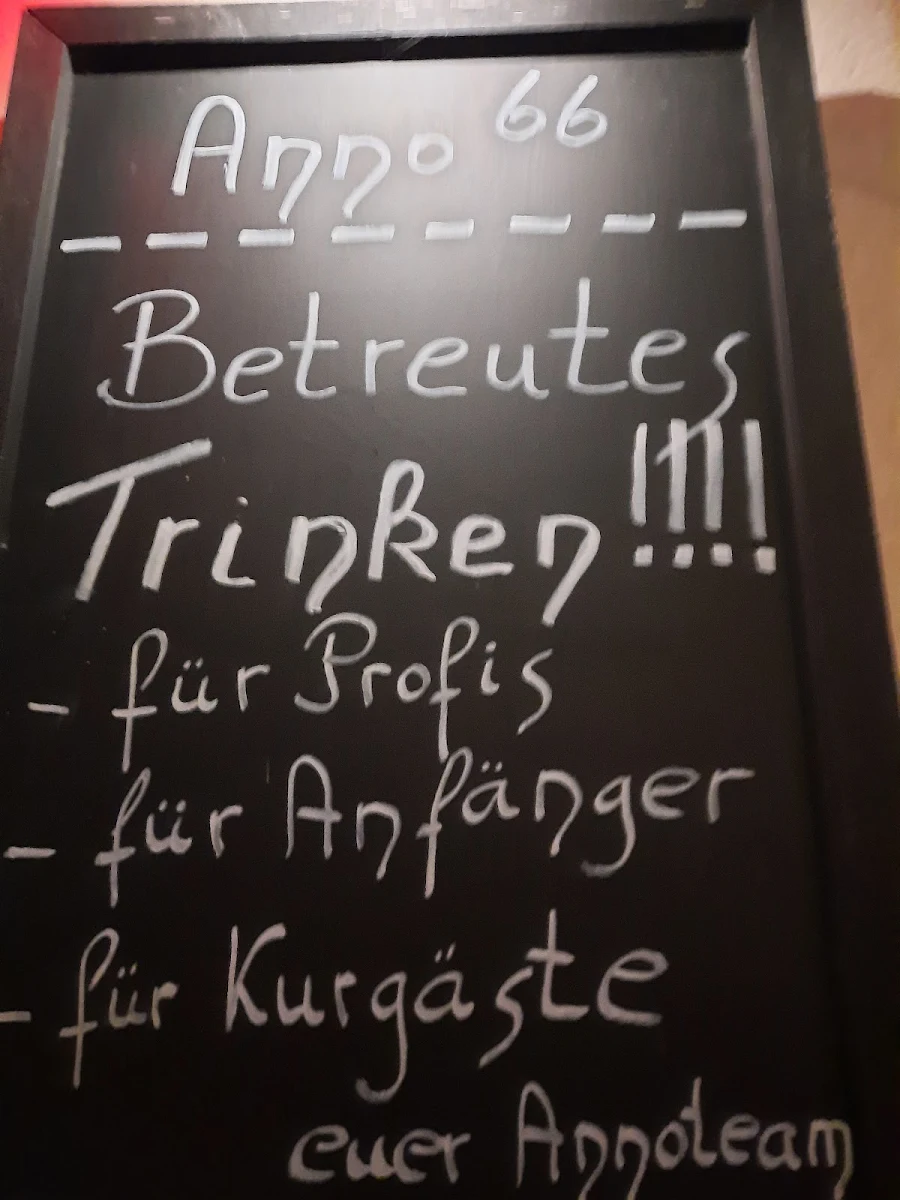 Anno 66
Betreutes
Trinken !!!!
- für Profis
- für Anfänger
- für Kurgäste
euer Annoteam